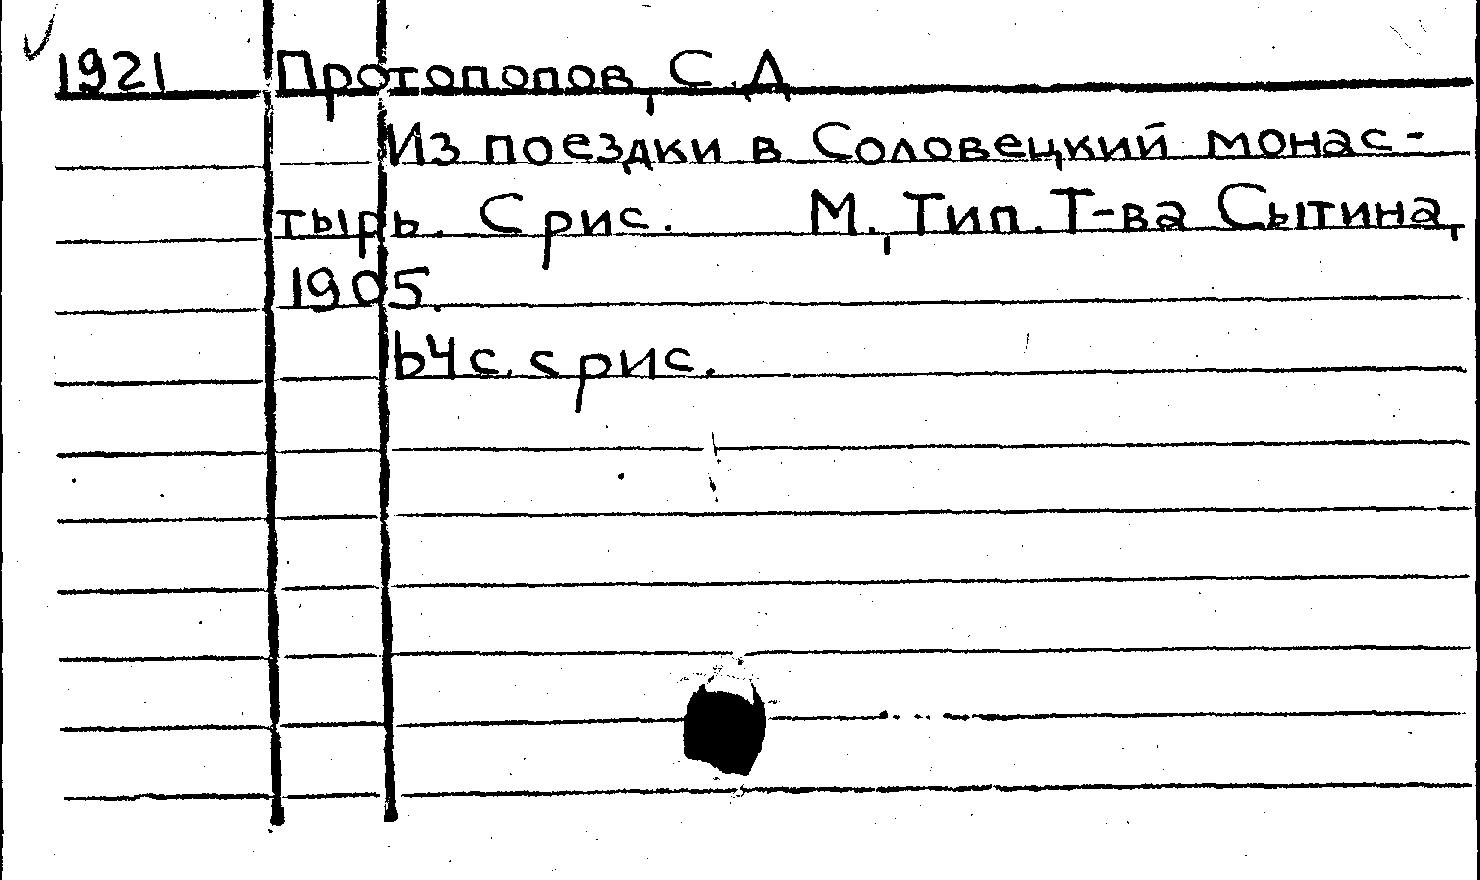 1921 Протопопов, С.Д
Из поездки в Соловецкий монас-
тырь. С рис. М., Тип. Т-ва Сытина,
1905.
64 с. с рис.